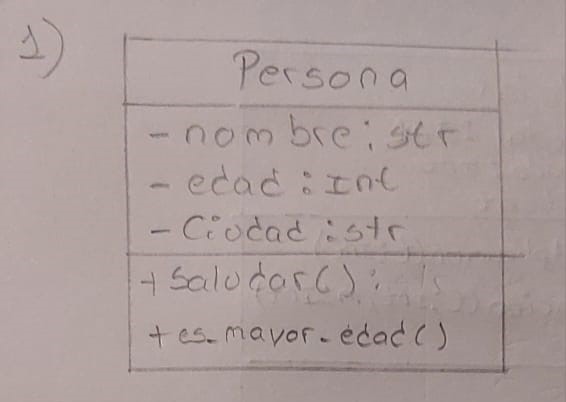 1)
Persona
- nombre: str
- edad: Int
- Ciudad: str
+ Saludar():
+ es_mayor_edad()